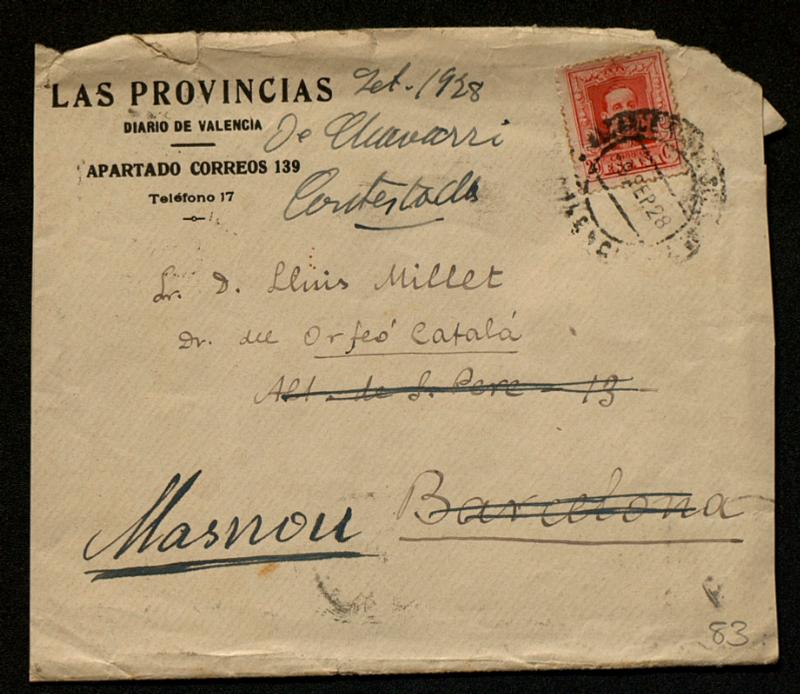 LAS PROVINCIAS
DIARIO DE VALENCIA
APARTADO CORREOS 139
Teléfono 17
Set. 1928
De Chavarri
Contestada
Sr. D. Lluis Millet
Dr. del Orfeó Catalá
Alt. de S. Pere - 13
Barcelona
Masnou
SEP 28
83